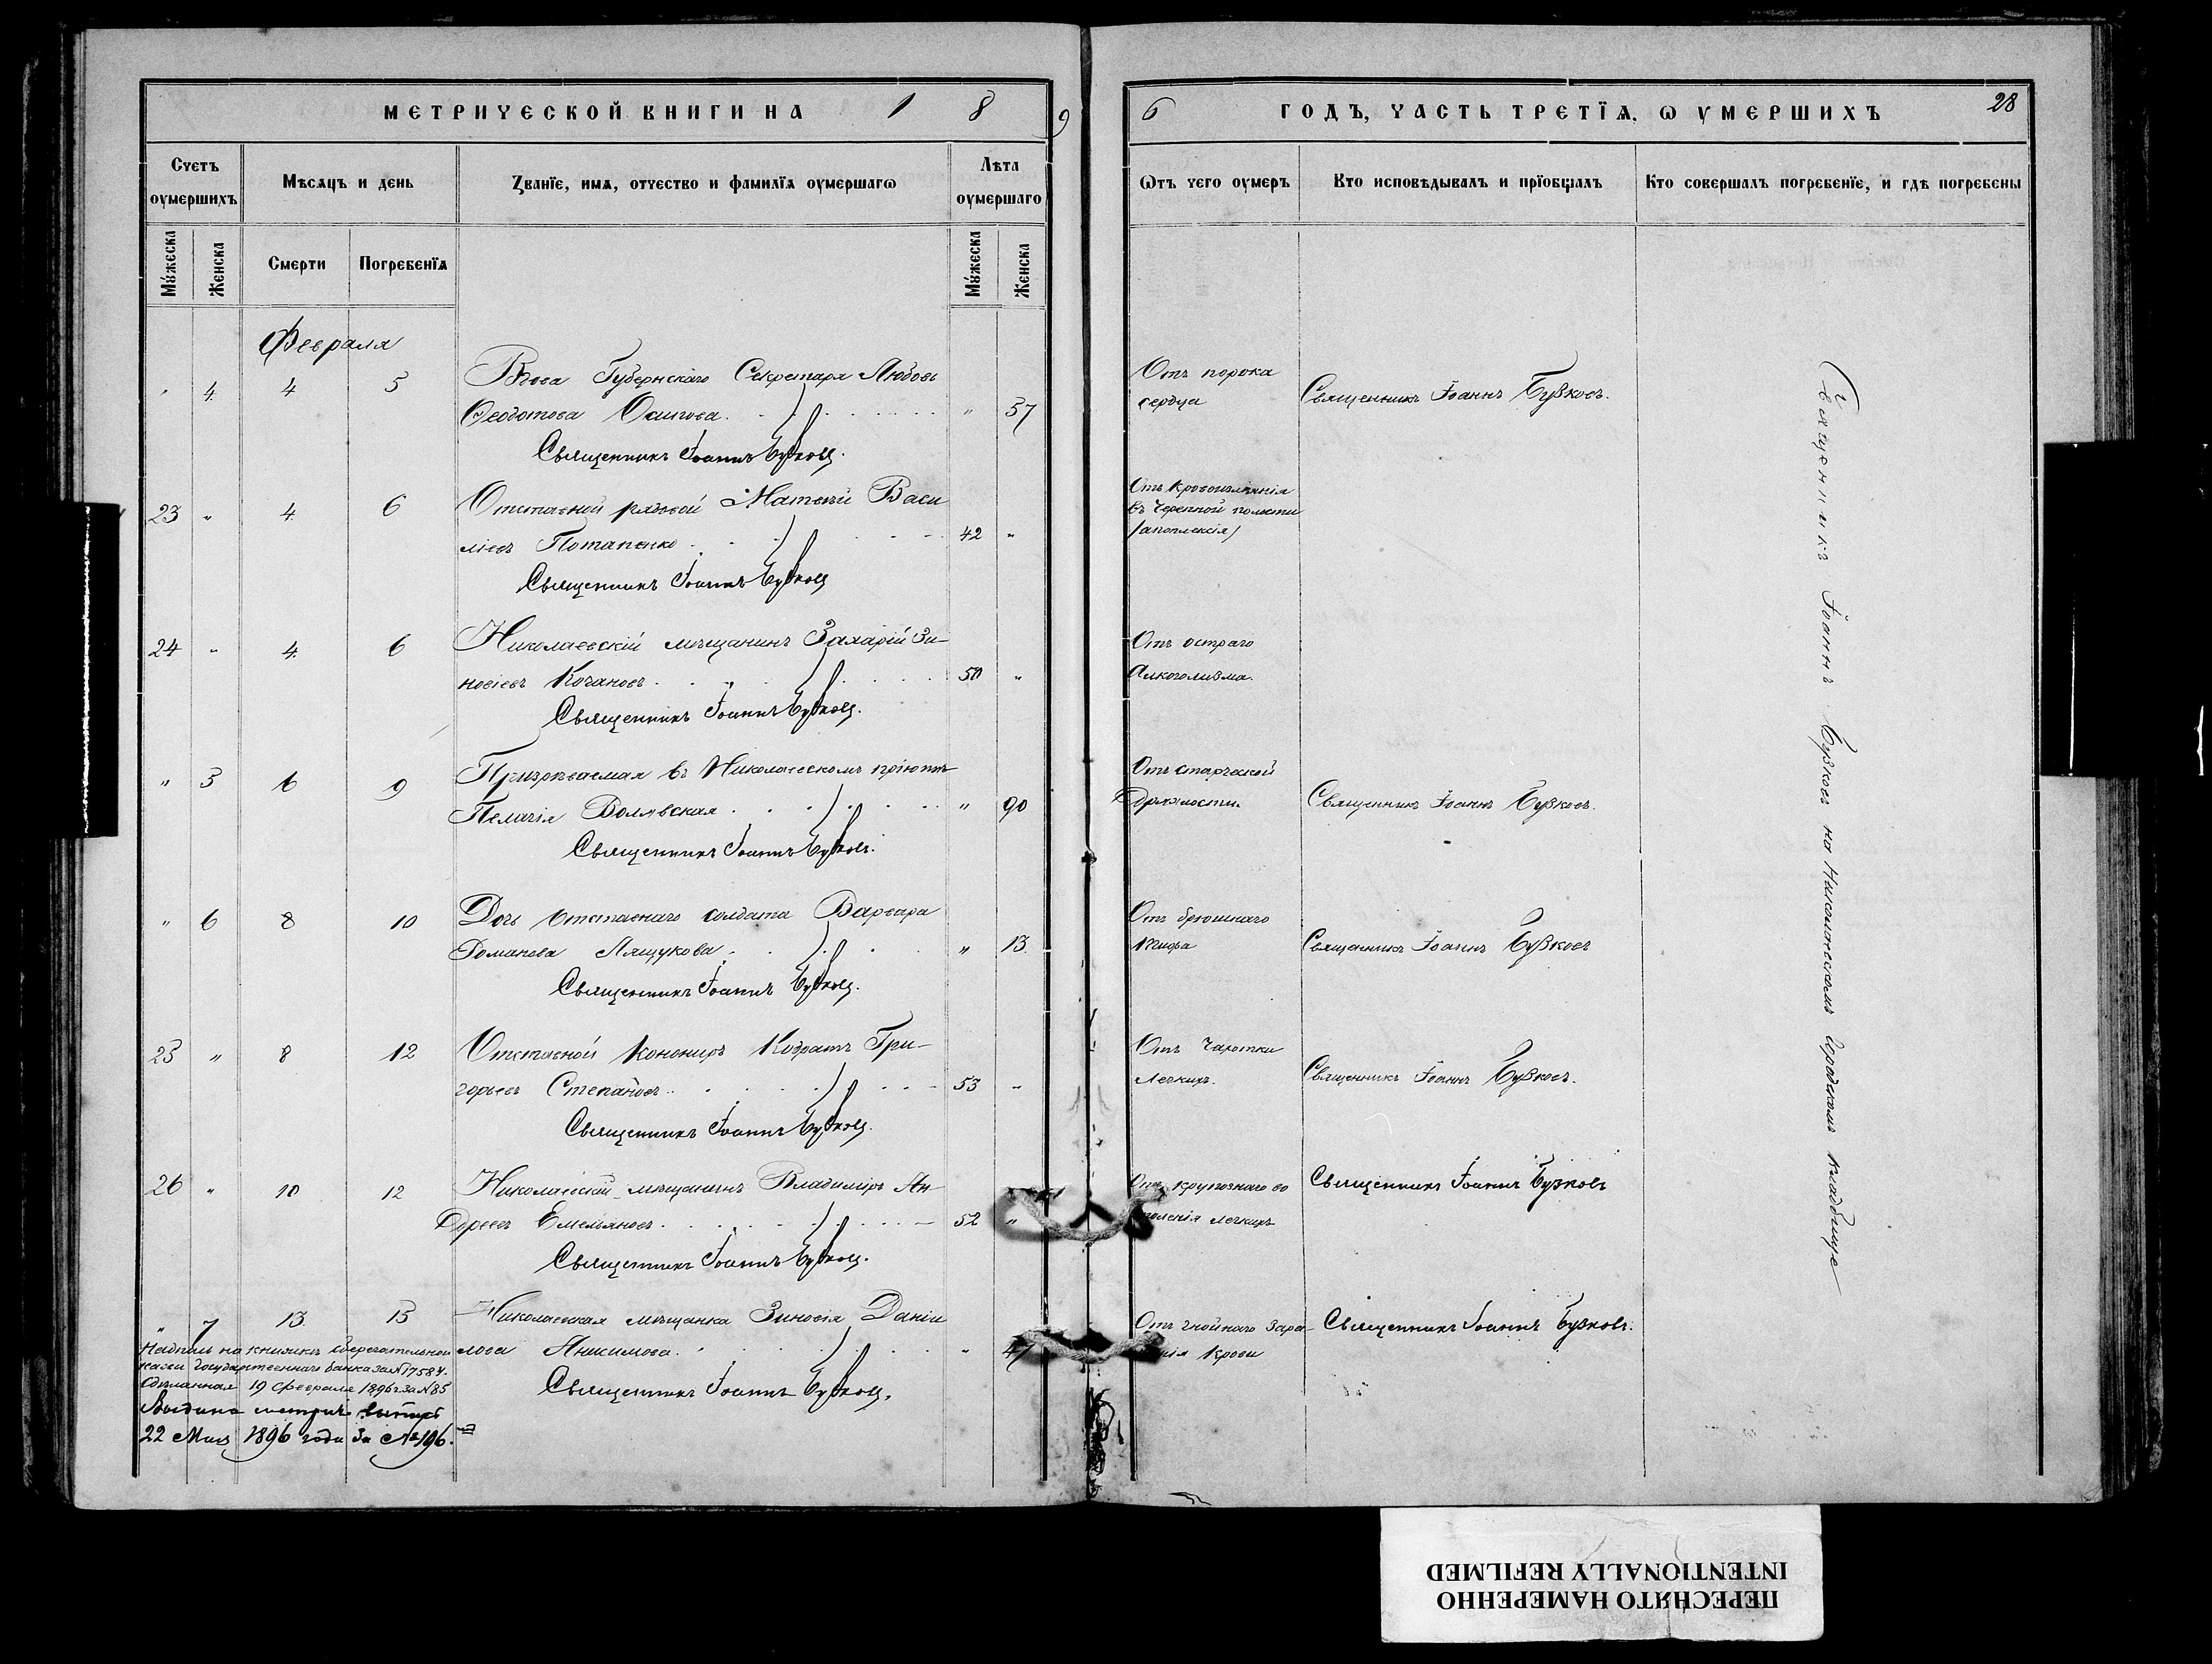 МЕТРИЧЕСКОЙ КНИГИ НА 1 8 9
6 ГОДЪ, ЧАСТЬ ТРЕТЇѦ, Ѡ УМЕРШИХЪ 28
Счетъ оумершихъ
Мѣсѧцъ и день
Званїе, имѧ, отчество и фамилїѧ оумершагѡ
Лѣта оумершаго
Ѿтъ чего оумеръ
Кто исповѣдывалъ и прїобщалъ
Кто совершалъ погребенїе, и гдѣ погребены
Мꙋжеска
Женска
Смерти
Погребенїѧ
Мꙋжеска
Женска
Февраля
" 4 4 5 Вдова Губернскаго Секретаря Любовь
Ѳеодотова Осипова " 37
Священникъ Іоаннъ Бузковъ.
Отъ порока
сердца
Священникъ Іоаннъ Бузковъ.
23 " 4 6 Отставной рядовой Матвѣй Васи
ліевъ Потапенко 42 "
Священникъ Іоаннъ Бузковъ
Отъ кровоизліянія
въ черепной полости
/апоплексія/
24 " 4 6 Николаевскій мѣщанинъ Захарій Зи-
новіевъ Кочановъ 50 "
Священникъ Іоаннъ Бузковъ.
Отъ остраго
Алкоголизма.
" 5 6 9 Призрѣваемая въ Николаевскомъ пріютѣ
Пелагія Волявская " 90
Священникъ Іоаннъ Бузковъ.
Отъ старческой
Дряхлости.
Священникъ Іоаннъ Бузковъ.
" 6 8 10 Дочь Отставнаго солдата Варвара
Романова Лящукова " 13.
Священникъ Іоаннъ Бузковъ.
Отъ брюшнаго
тифа
Священникъ Іоаннъ Бузковъ
25 " 8 12 Отставной Кононіръ Кодратъ Гри-
горьевъ Степановъ 53 "
Священникъ Іоаннъ Бузковъ.
Отъ Чахотки
Легкихъ.
Священникъ Іоаннъ Бузковъ.
26 " 10 12 Николаевскій мѣщанинъ Владиміръ Ан-
дреевъ Емельяновъ 52 "
Священникъ Іоаннъ Бузковъ.
Отъ крупознаго во
паленія легкихъ
Священникъ Іоаннъ Бузковъ
" 7 13. 15 Николаевская мѣщанка Зиновія Даніи
лова Анисимова " 47
Священникъ Іоаннъ Бузковъ.
Отъ гнойнаго Зара-
нія Крови
Священникъ Іоаннъ Бузковъ.
Надпись на книжкѣ сберегательной
кассы Государственнаго банка за № 17584.
сдѣланная 19 февраля 1896 г. за № 85
Выдана метрич. выпись
22 Мая 1896 года за № 196.
Священникъ Іоаннъ Бузковъ на Николаевскомъ Городскомъ кладбище
ПЕРЕСНЯТО НАМЕРЕННО
INTENTIONALLY REFILMED